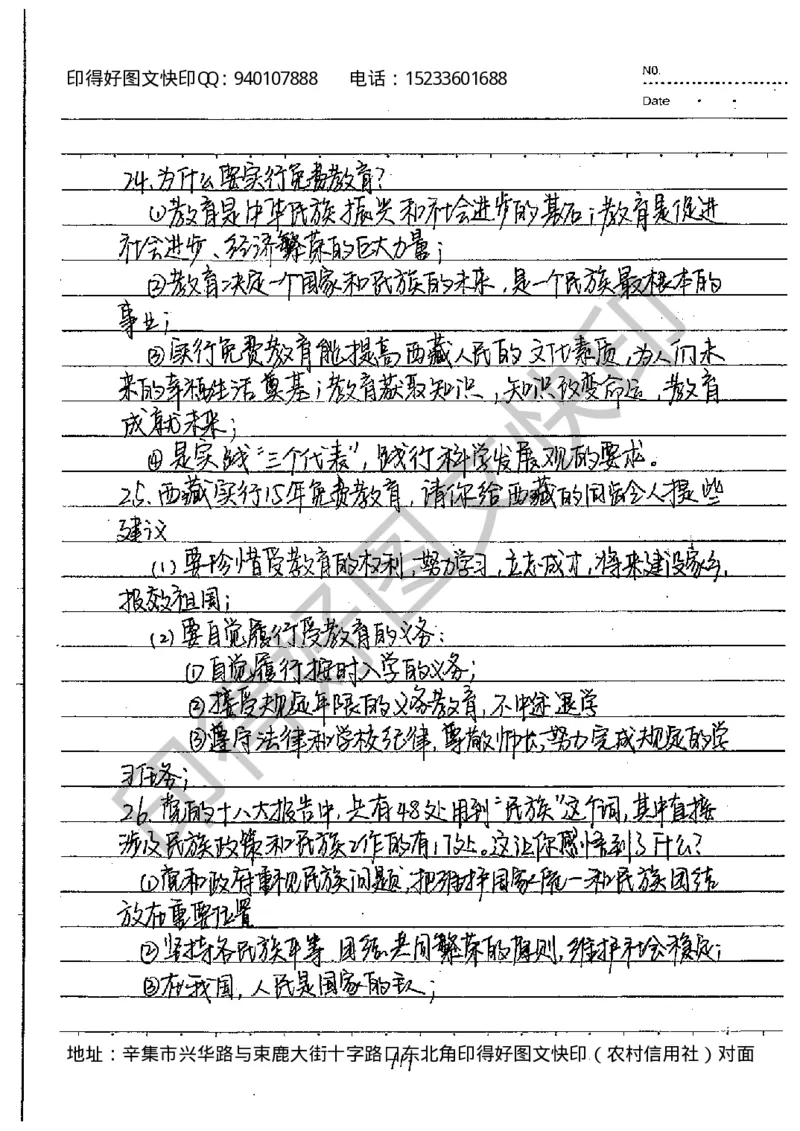 印得好图文快印QQ：940107888 电话：15233601688
No.
Date
24.为什么要实行免费教育？
①教育是中华民族振兴和社会进步的基石；教育是促进
社会进步、经济繁荣的巨大力量；
②教育决定一个国家和民族的未来，是一个民族最根本的
事业；
③实行免费教育能提高西藏人民的文化素质，为人们未
来的幸福生活奠基；教育获取知识，知识改变命运，教育
成就未来；
④是实践“三个代表”，践行科学发展观的要求。
25.西藏实行15年免费教育，请你给西藏的同龄人提些
建议
(1)要珍惜受教育的权利，努力学习，立志成才，将来建设家乡，
报效祖国；
(2)要自觉履行受教育的义务：
①自觉履行按时入学的义务；
②接受规定年限的义务教育，不中途退学
③遵守法律和学校纪律，尊敬师长，努力完成规定的学
习任务；
26.党的十八大报告中，共有48处用到“民族”这个词，其中直接
涉及民族政策和民族工作的有17处。这让你感悟到了什么？
①党和政府重视民族问题，把维护国家统一和民族团结
放在重要位置
②坚持各民族平等、团结、共同繁荣的原则，维护社会稳定；
③在我国，人民是国家的主人；
地址：辛集市兴华路与束鹿大街十字路口东北角印得好图文快印（农村信用社）对面
印得好图文快印